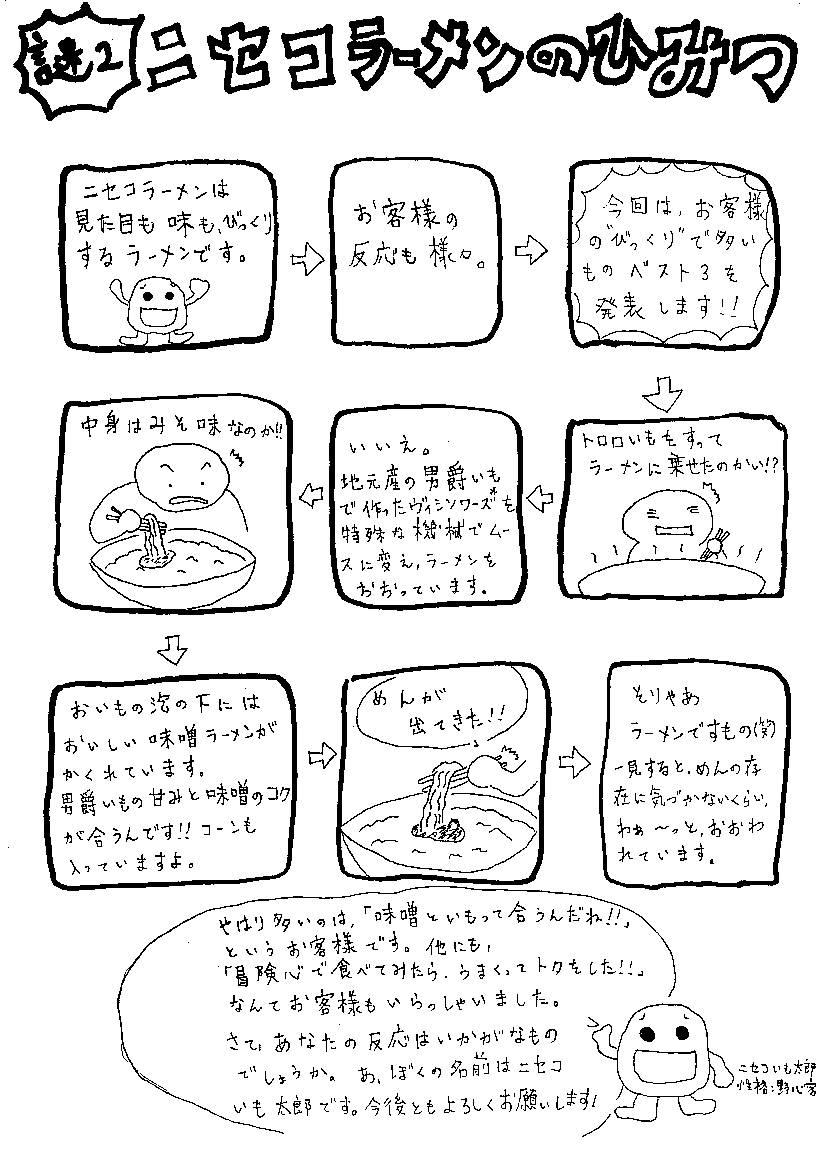 謎2 ニセコラーメンのひみつ
ニセコラーメンは
見た目も味も、びっくり
するラーメンです。
お客様の
反応も様々。
今回は、お客様
の"びっくり"で多い
ものベスト3を
発表します!!
トロロいもをすって
ラーメンに乗せたのかい!?
いいえ。
地元産の男爵いも
で作ったヴィシソワーズ*を
特殊な機械でムー
スに変え、ラーメンを
おおっています。
中身はみそ味なのか!!
おいもの泡の下には
おいしい味噌ラーメンが
かくれています。
男爵いもの甘みと味噌のコク
が合うんです!! コーンも
入っていますよ。
めんが
出てきた!!
そりゃあ
ラーメンですもの(笑)
一見すると、めんの存
在に気づかないくらい、
わぁ〜っと、おおわ
れています。
やはり多いのは、「味噌といもって合うんだね!!」
というお客様です。他にも、
「冒険心で食べてみたら、うまくってトクをした!!」
なんてお客様もいらっしゃいました。
さて、あなたの反応はいかがなもの
でしょうか。あ、ぼくの名前はニセコ
いも太郎です。今後ともよろしくお願いします!
ニセコいも太郎
性格:野心家